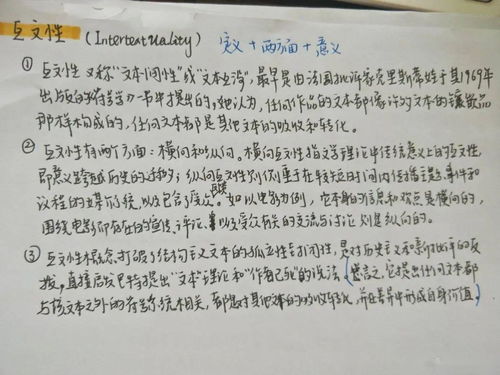 互文性 (Intertextuality) 定义+两方面+意义
① 互文性又称“文本间性”或“文本互涉”,最早是由法国批评家克里斯蒂娃于其1969年
出版的《符号学》一书中提出的,她认为,任何作品的文本都像许多文本的镶嵌品
那样构成的,任何文本都是其他文本的吸收和转化。
② 互文性有两个方面:横向和纵向。横向互文性指文学理论中传统意义上的互文性,
即意义跨越历史的迁移;纵向互文性则侧重在较短时间内传播主题、事件和
议程的媒介系统,以及包含受众。如以电影为例,它本身的信息和观点是横向的,
围绕电影而存在的宣传、评论、以及受众有关的交流与讨论则是纵向的。
③ 互文性概念打破了结构主义文本的孤立性封闭性,是对历史主义和新批评的反
拨,直接启发巴特提出“文本”理论和“作者已死”的说法(总言之,它提出任何文本都
与该文本之外的符号系统相关,都是对其他文本的吸收转化,并在差异中形成自身价值)